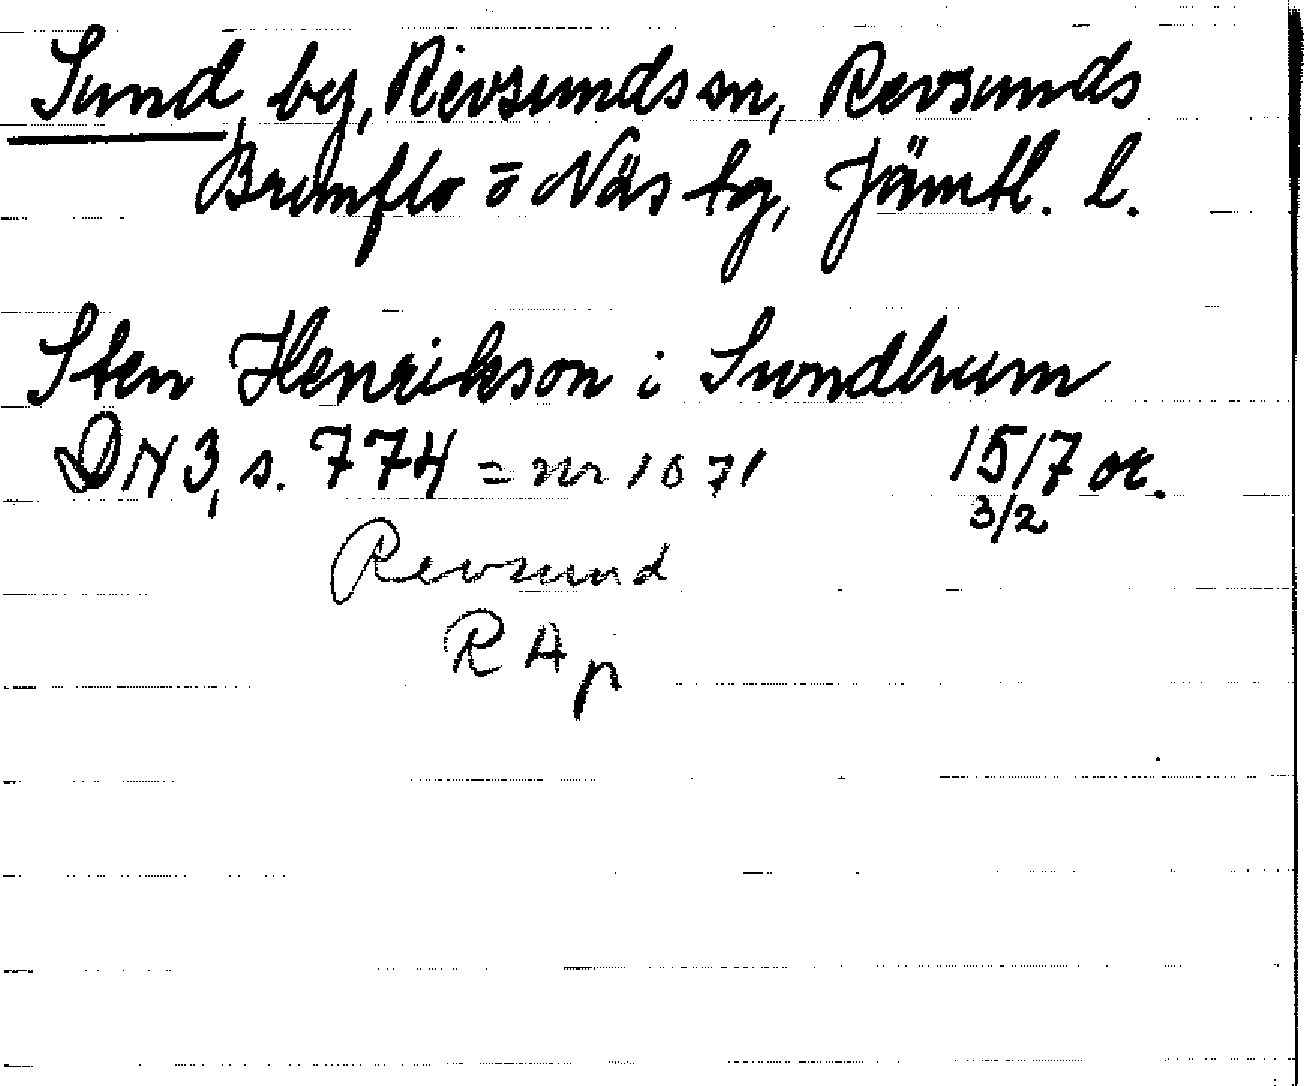 Sund, by, Revsunds sn, Revsunds
Brunflo o Näs tg, Jämtl. l.
Sten Henrikson i Swndhum
DN 3, s. 774 = nr 1071
1517 or.
3/2
Revsund
RAp